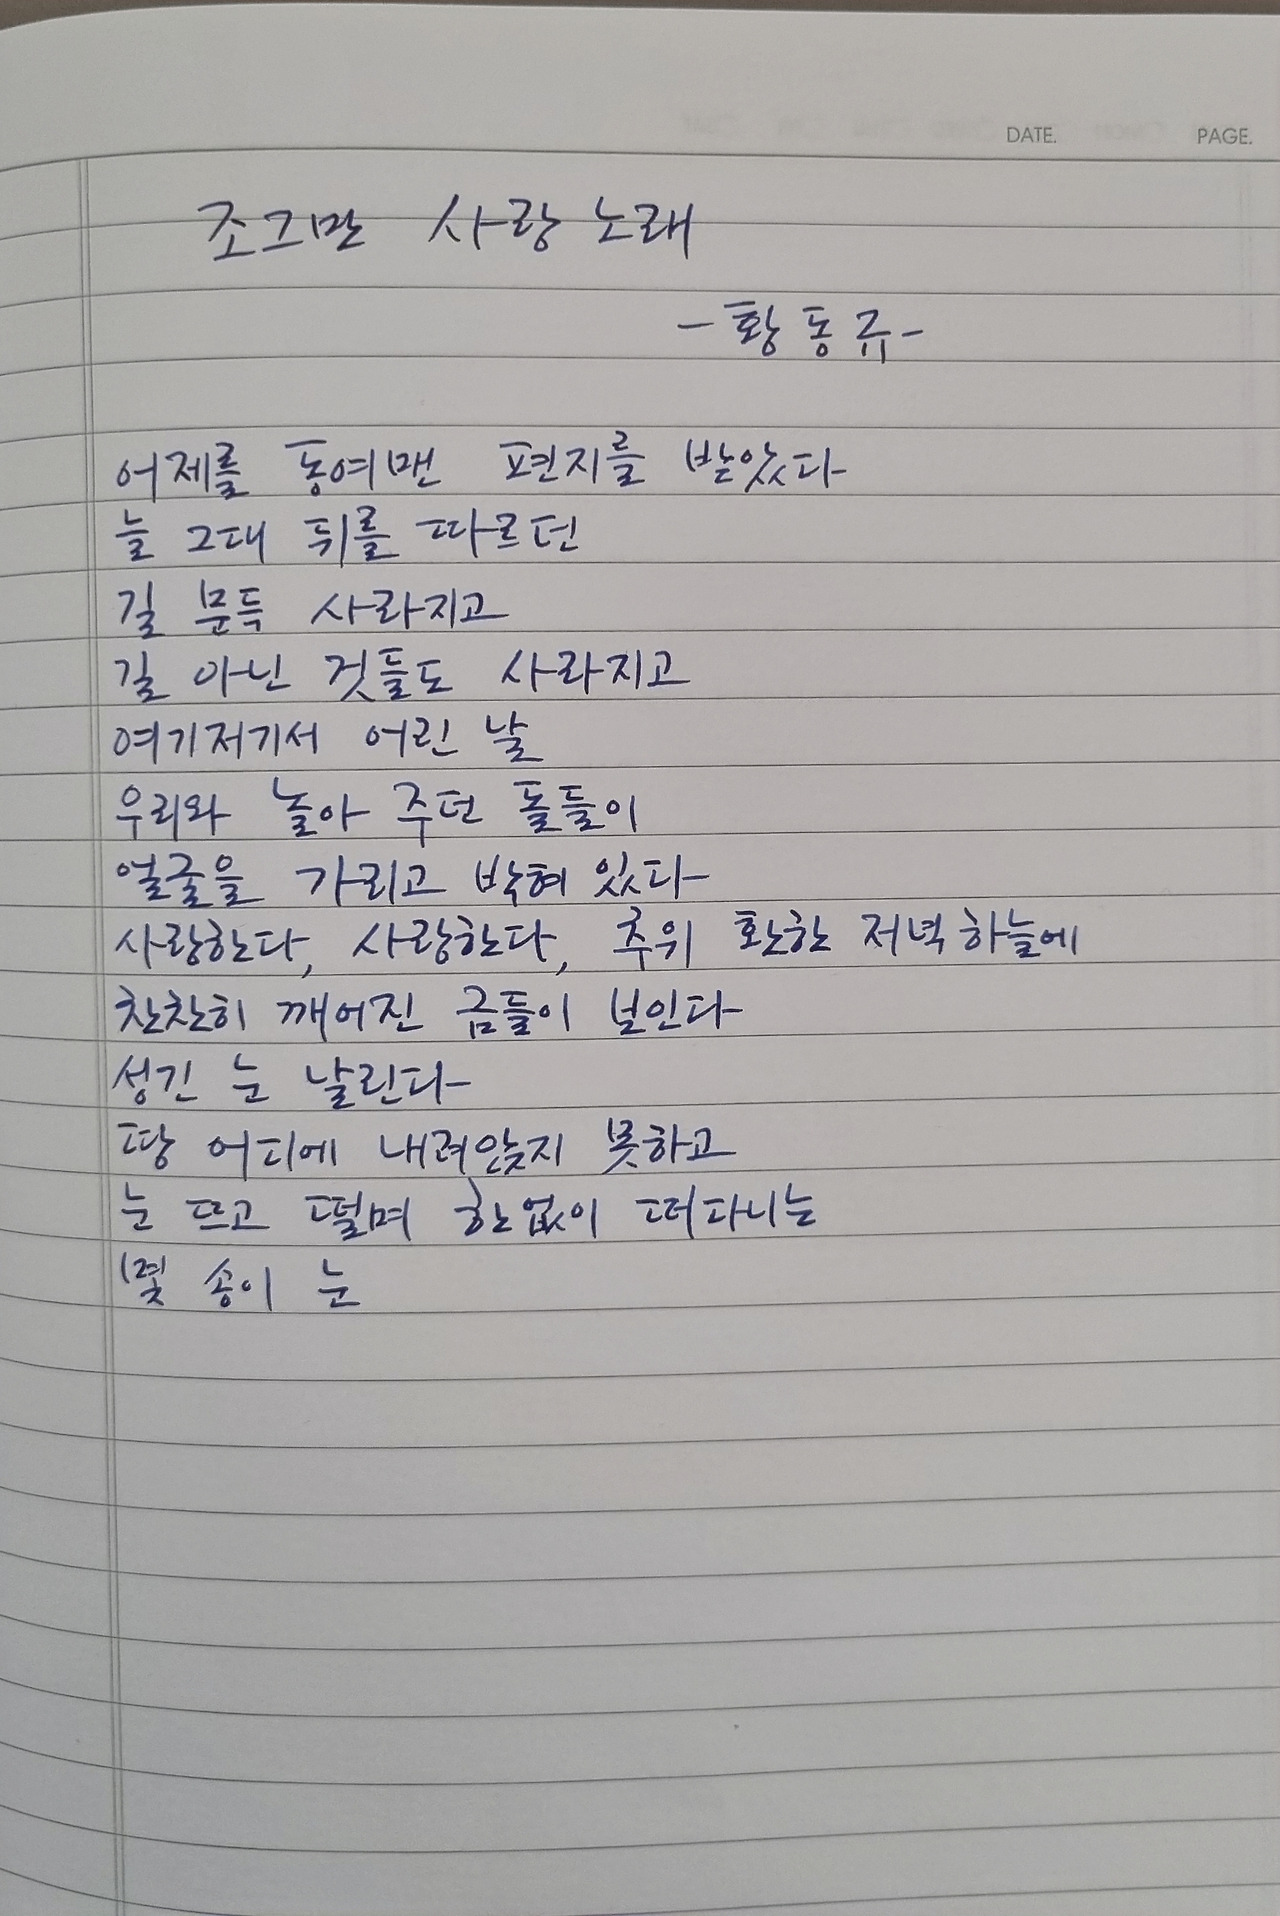 DATE. PAGE.
조그만 사랑 노래
- 황동규 -
어제를 동여맨 편지를 받았다
늘 그대 뒤를 따르던
길 문득 사라지고
길 아닌 것들도 사라지고
여기저기서 어린 날
우리와 놀아 주던 돌들이
얼굴을 가리고 박혀 있다
사랑한다, 사랑한다, 추위 환한 저녁 하늘에
찬찬히 깨어진 금들이 보인다
성긴 눈 날린다
땅 어디에 내려앉지 못하고
눈 뜨고 떨며 한없이 떠다니는
몇 송이 눈